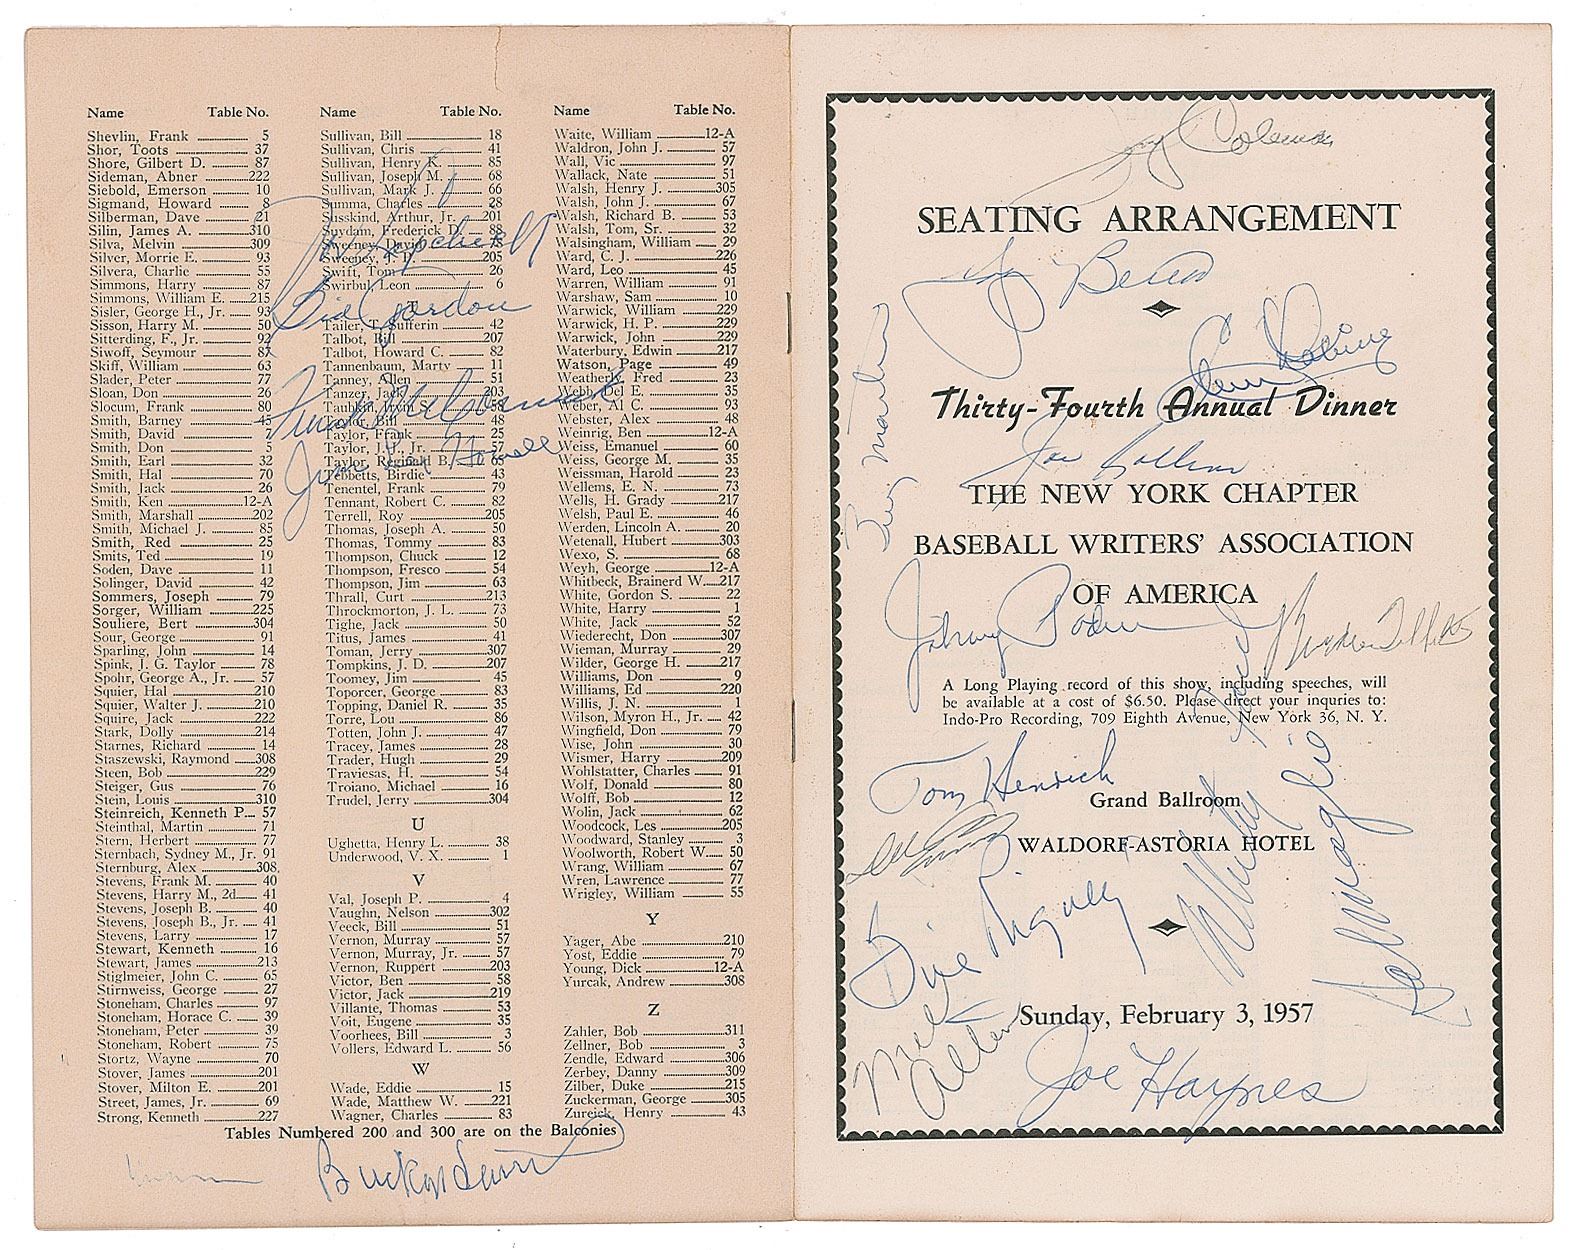 Name Table No.
Shevlin, Frank 5
Shor, Toots 37
Shore, Gilbert D. 87
Sideman, Abner 222
Siebold, Emerson 10
Sigmand, Howard 8
Silberman, Dave 21
Silin, James A. 310
Silva, Melvin 309
Silver, Morrie E. 93
Silvera, Charlie 55
Simmons, Harry 87
Simmons, William E. 215
Sisler, George H., Jr. 93
Sisson, Harry M. 50
Sitterding, F., Jr. 92
Siwoff, Seymour 87
Skiff, William 63
Slader, Peter 77
Sloan, Don 26
Slocum, Frank 80
Smith, Barney 45
Smith, David 7
Smith, Don 5
Smith, Earl 32
Smith, Hal 70
Smith, Jack 26
Smith, Ken 12-A
Smith, Marshall 202
Smith, Michael J. 85
Smith, Red 25
Smits, Ted 19
Soden, Dave 11
Solinger, David 42
Sommers, Joseph 79
Sorger, William 225
Souliere, Bert 304
Sour, George 91
Sparling, John 14
Spink, J. G. Taylor 78
Spohr, George A., Jr. 57
Squier, Hal 210
Squier, Walter J. 210
Squire, Jack 222
Stark, Dolly 214
Starnes, Richard 14
Staszewski, Raymond 308
Steen, Bob 229
Steiger, Gus 76
Stein, Louis 310
Steinreich, Kenneth P. 57
Steinthal, Martin 71
Stern, Herbert 77
Sternbach, Sydney M., Jr. 91
Sternburg, Alex 308
Stevens, Frank M. 40
Stevens, Harry M., 2d 41
Stevens, Joseph B. 40
Stevens, Joseph B., Jr. 41
Stevens, Larry 17
Stewart, Kenneth 16
Stewart, James 213
Stiglmeier, John C. 65
Stirnweiss, George 27
Stoneham, Charles 97
Stoneham, Horace C. 39
Stoneham, Peter 39
Stoneham, Robert 75
Stortz, Wayne 70
Stover, James 201
Stover, Milton E. 201
Street, James, Jr. 69
Strong, Kenneth 227
Name Table No.
Sullivan, Bill 18
Sullivan, Chris 41
Sullivan, Henry K. 85
Sullivan, Joseph M. 68
Sullivan, Mark J. 66
Summa, Charles 28
Susskind, Arthur, Jr. 201
Suydam, Frederick D. 88
Sweeney, David 75
Sweeney, J. P. 205
Swift, Tom 26
Swirbul, Leon 6
T
Tailer, T. Sufferin 42
Talbot, Bill 207
Talbot, Howard C. 82
Tannenbaum, Marty 11
Tanney, Allen 51
Tanzer, Jack 203
58
Taylor, Bill 48
Taylor, Frank 25
Taylor, J. J., Jr. 57
Taylor, Reginald B. 65
Tebbetts, Birdie 43
Tenentel, Frank 79
Tennant, Robert C. 82
Terrell, Roy 205
Thomas, Joseph A. 50
Thomas, Tommy 83
Thompson, Chuck 12
Thompson, Fresco 54
Thompson, Jim 63
Thrall, Curt 213
Throckmorton, J. L. 73
Tighe, Jack 50
Titus, James 41
Toman, Jerry 307
Tompkins, J. D. 207
Toomey, Jim 45
Toporcer, George 83
Topping, Daniel R. 35
Torre, Lou 86
Totten, John J. 47
Tracey, James 28
Trader, Hugh 29
Traviesas, H. 54
Troiano, Michael 16
Trudel, Jerry 304
U
Ughetta, Henry L. 38
Underwood, V. X. 1
V
Val, Joseph P. 4
Vaughn, Nelson 302
Veeck, Bill 51
Vernon, Murray 57
Vernon, Murray, Jr. 57
Vernon, Ruppert 203
Victor, Ben 58
Victor, Jack 219
Villante, Thomas 53
Voit, Eugene 35
Voorhees, Bill 3
Vollers, Edward L. 56
W
Wade, Eddie 15
Wade, Matthew W. 221
Wagner, Charles 83
Name Table No.
Waite, William 12-A
Waldron, John J. 57
Wall, Vic 97
Wallack, Nate 51
Walsh, Henry J. 305
Walsh, John J. 67
Walsh, Richard B. 53
Walsh, Tom, Sr. 32
Walsingham, William 29
Ward, C. J. 226
Ward, Leo 45
Warren, William 91
Warshaw, Sam 10
Warwick, William 229
Warwick, H. P. 229
Warwick, John 229
Waterbury, Edwin 217
Watson, Page 49
Weatherly, Fred 23
Webb, Del E. 35
Weber, Al C. 93
Webster, Alex 48
Weinrig, Ben 12-A
Weiss, Emanuel 60
Weiss, George M. 35
Weissman, Harold 23
Wellems, E. N. 73
Wells, H. Grady 217
Welsh, Paul E. 46
Werden, Lincoln A. 20
Wetenall, Hubert 303
Wexo, S. 68
Weyh, George 12-A
Whitbeck, Brainerd W. 217
White, Gordon S. 22
White, Harry 1
White, Jack 52
Wiederecht, Don 307
Wieman, Murray 29
Wilder, George H. 217
Williams, Don 9
Williams, Ed 220
Willis, J. N. 1
Wilson, Myron H., Jr. 42
Wingfield, Don 79
Wise, John 30
Wismer, Harry 209
Wohlstatter, Charles 91
Wolf, Donald 80
Wolff, Bob 12
Wolin, Jack 62
Woodcock, Les 205
Woodward, Stanley 3
Woolworth, Robert W. 50
Wrang, William 67
Wren, Lawrence 77
Wrigley, William 55
Y
Yager, Abe 210
Yost, Eddie 79
Young, Dick 12-A
Yurcak, Andrew 308
Z
Zahler, Bob 311
Zellner, Bob 3
Zendle, Edward 306
Zerbey, Danny 309
Zilber, Duke 215
Zuckerman, George 305
Zureick, Henry 43
Tables Numbered 200 and 300 are on the Balconies
Sid Gordon
Jim Lee Howell
Jerry Coleman
SEATING ARRANGEMENT
Yogi Berra
Thirty-Fourth Annual Dinner
Joe Collins
THE NEW YORK CHAPTER
BASEBALL WRITERS' ASSOCIATION
OF AMERICA
Johnny Podres
Birdie Tebbetts
A Long Playing record of this show, including speeches, will
be available at a cost of $6.50. Please direct your inquries to:
Indo-Pro Recording, 709 Eighth Avenue, New York 36, N. Y.
Tom Henrich
Grand Ballroom
WALDORF-ASTORIA HOTEL
Bill Rigney
Sal Maglie
Mel Allen
Sunday, February 3, 1957
Joe Haynes